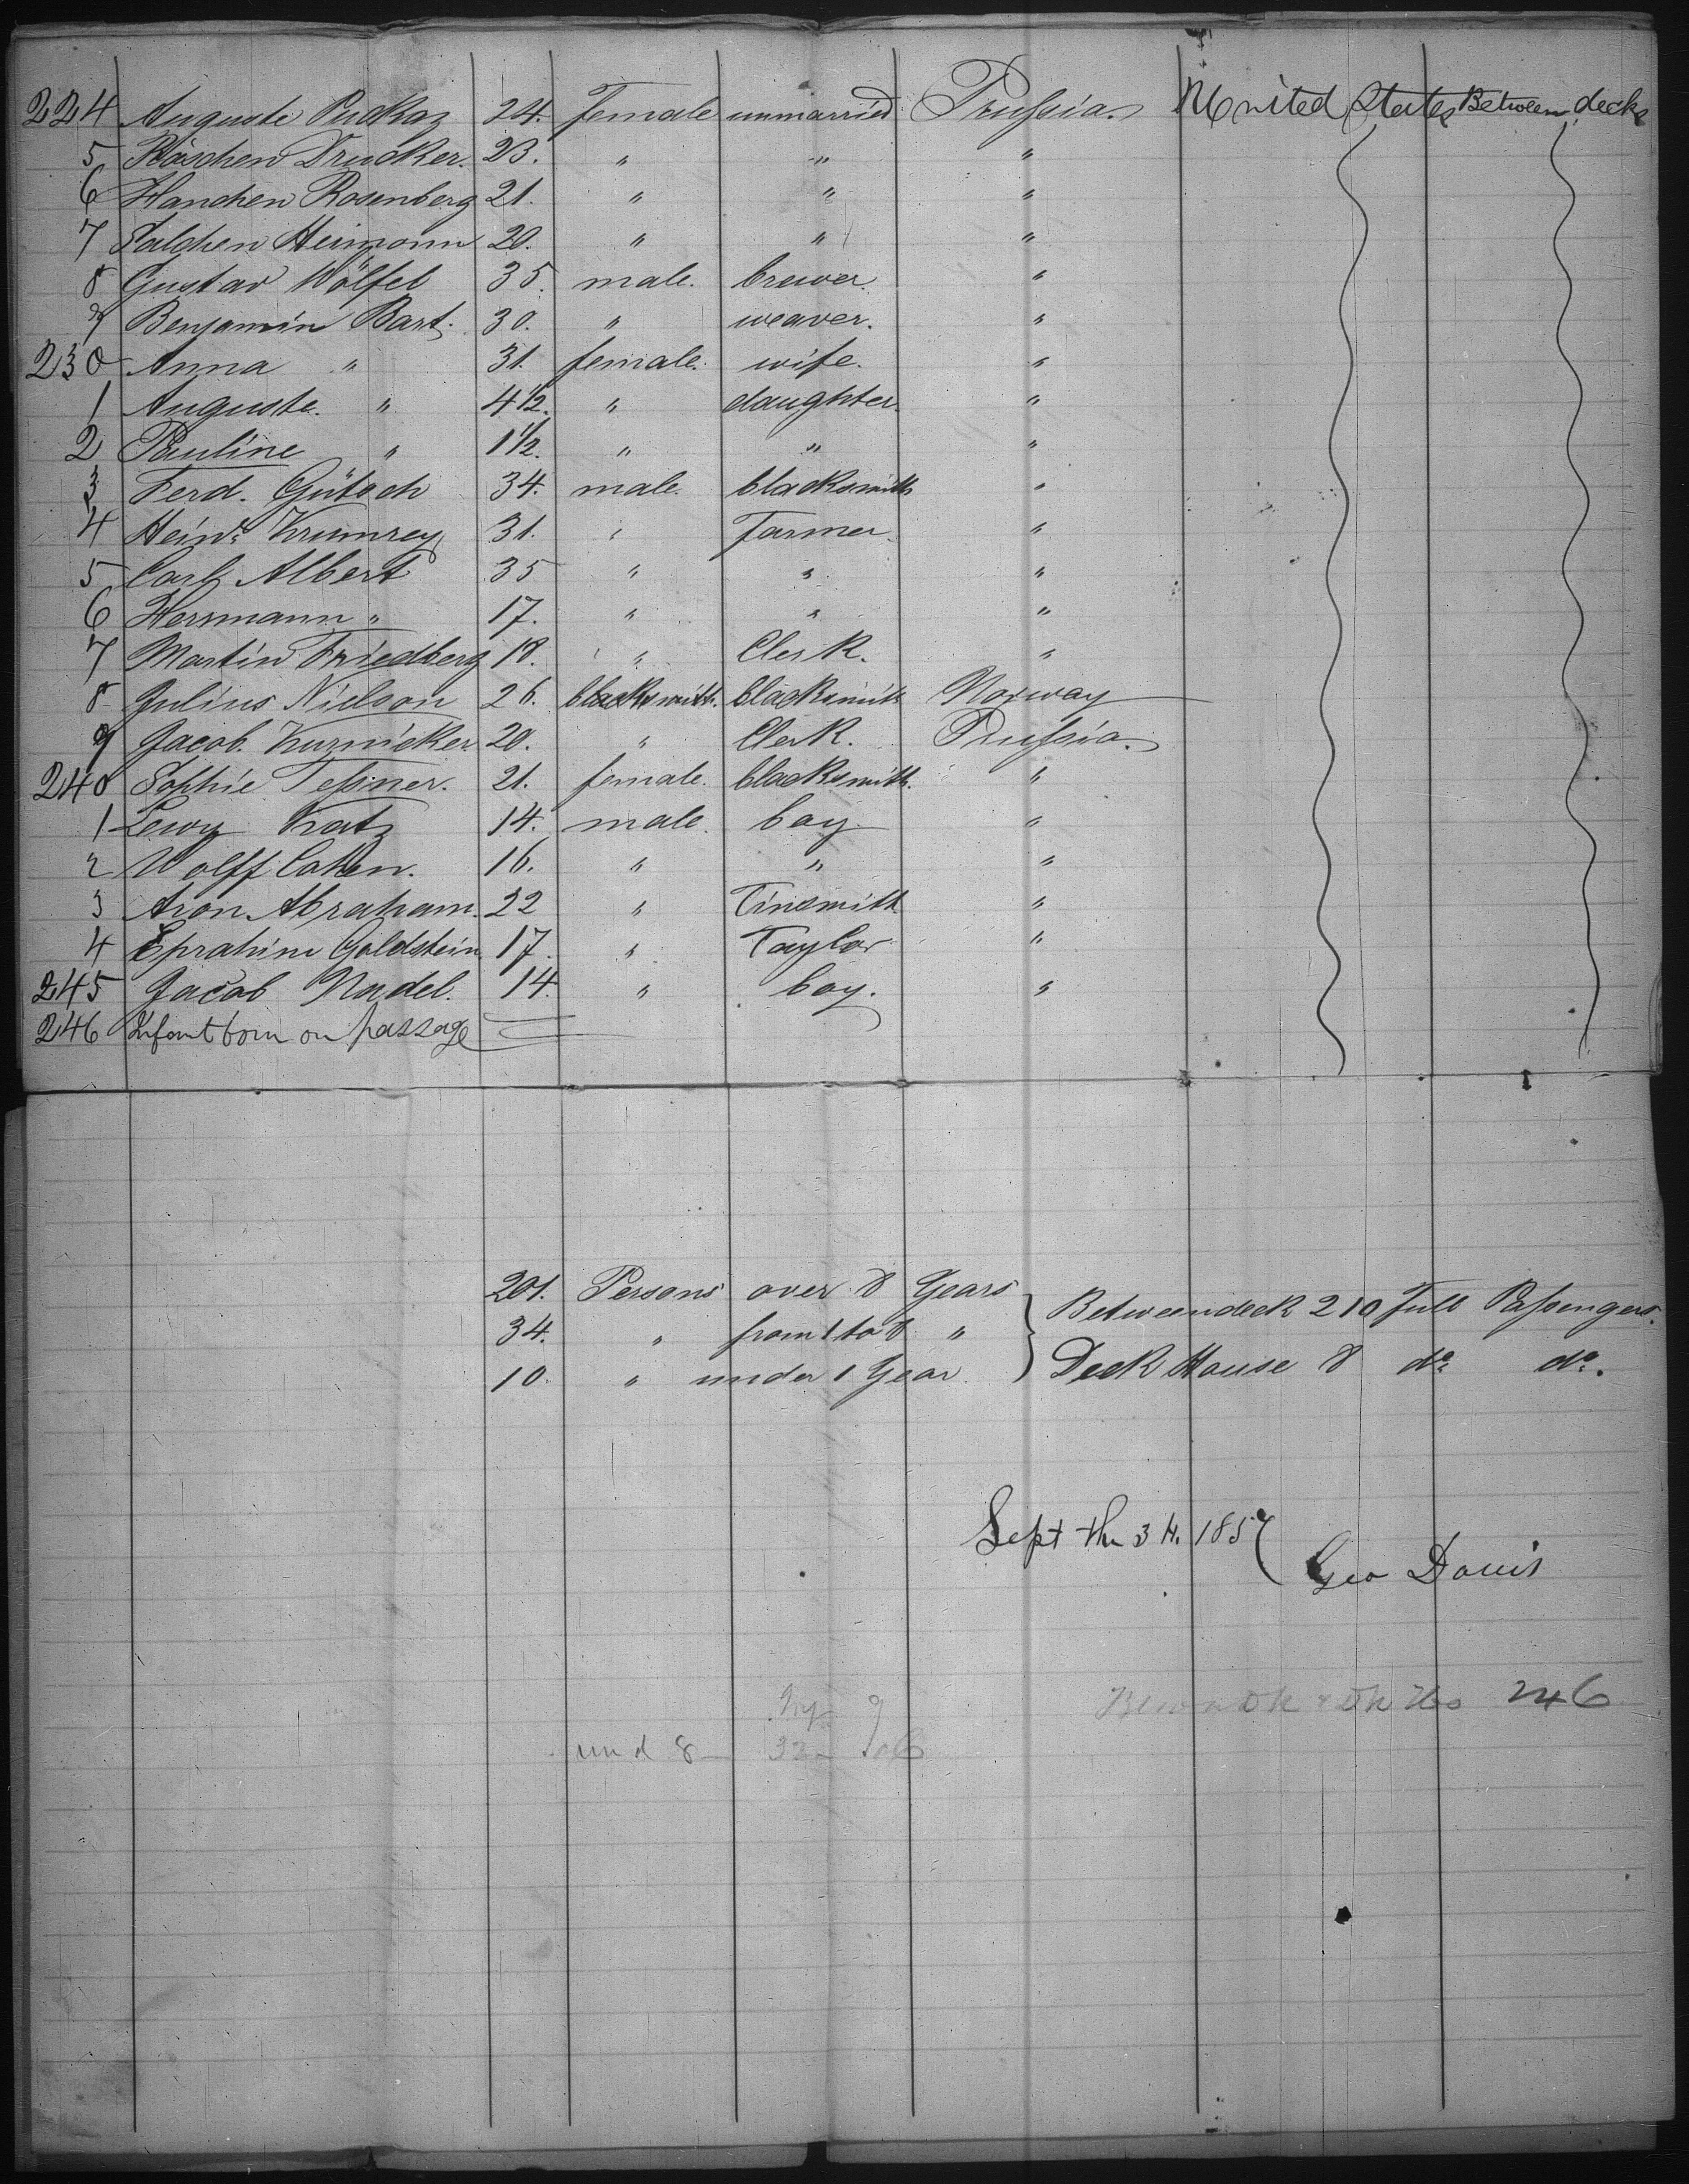 224 Auguste Pudkaz 24. Female unmarried Prussia. United States Between decks
5 Röschen Drucker. 23. " " "
6 Hanchen Rosenberg 21. " " "
7 Salchen Heimann 20. " " "
8 Gustav Wölfel 35. male. brewer. "
9 Benjamin Bart. 30. " weaver. "
230 Anna " 31. female. wife. "
1 Auguste. " 4 1/2. " daughter. "
2 Pauline " 1 1/2. " " "
3 Ferd. Gütsch 34. male. blacksmith "
4 Heinr. Krumrey 31. " Farmer. "
5 Carl Albert 35 " " "
6 Herrmann " 17. " " "
7 Martin Friedberg 18. " Clerk. "
8 Julius Nielson 26. blacksmith. blacksmith Norway
9 Jacob. Kurnicker 20. " Clerk. Prussia.
240 Sophie Tessner. 21. female. blacksmith. "
1 Lewy Katz 14. male. boy "
2 Wolff Cohen. 16. " " "
3 Aron Abraham. 22 " Tinsmith "
4 Ephrahim Goldstein 17. " Taylor "
245 Jacob Nadel. 14. " boy. "
246 Infant born on passage
201. Persons over 8 Years
34. " from 1 to 8 " Betweendeck 210 Full Passengers.
10. " under 1 Year Deck House 8 do. do.
Sept the 3 1857
Geo Davis
246
und 8